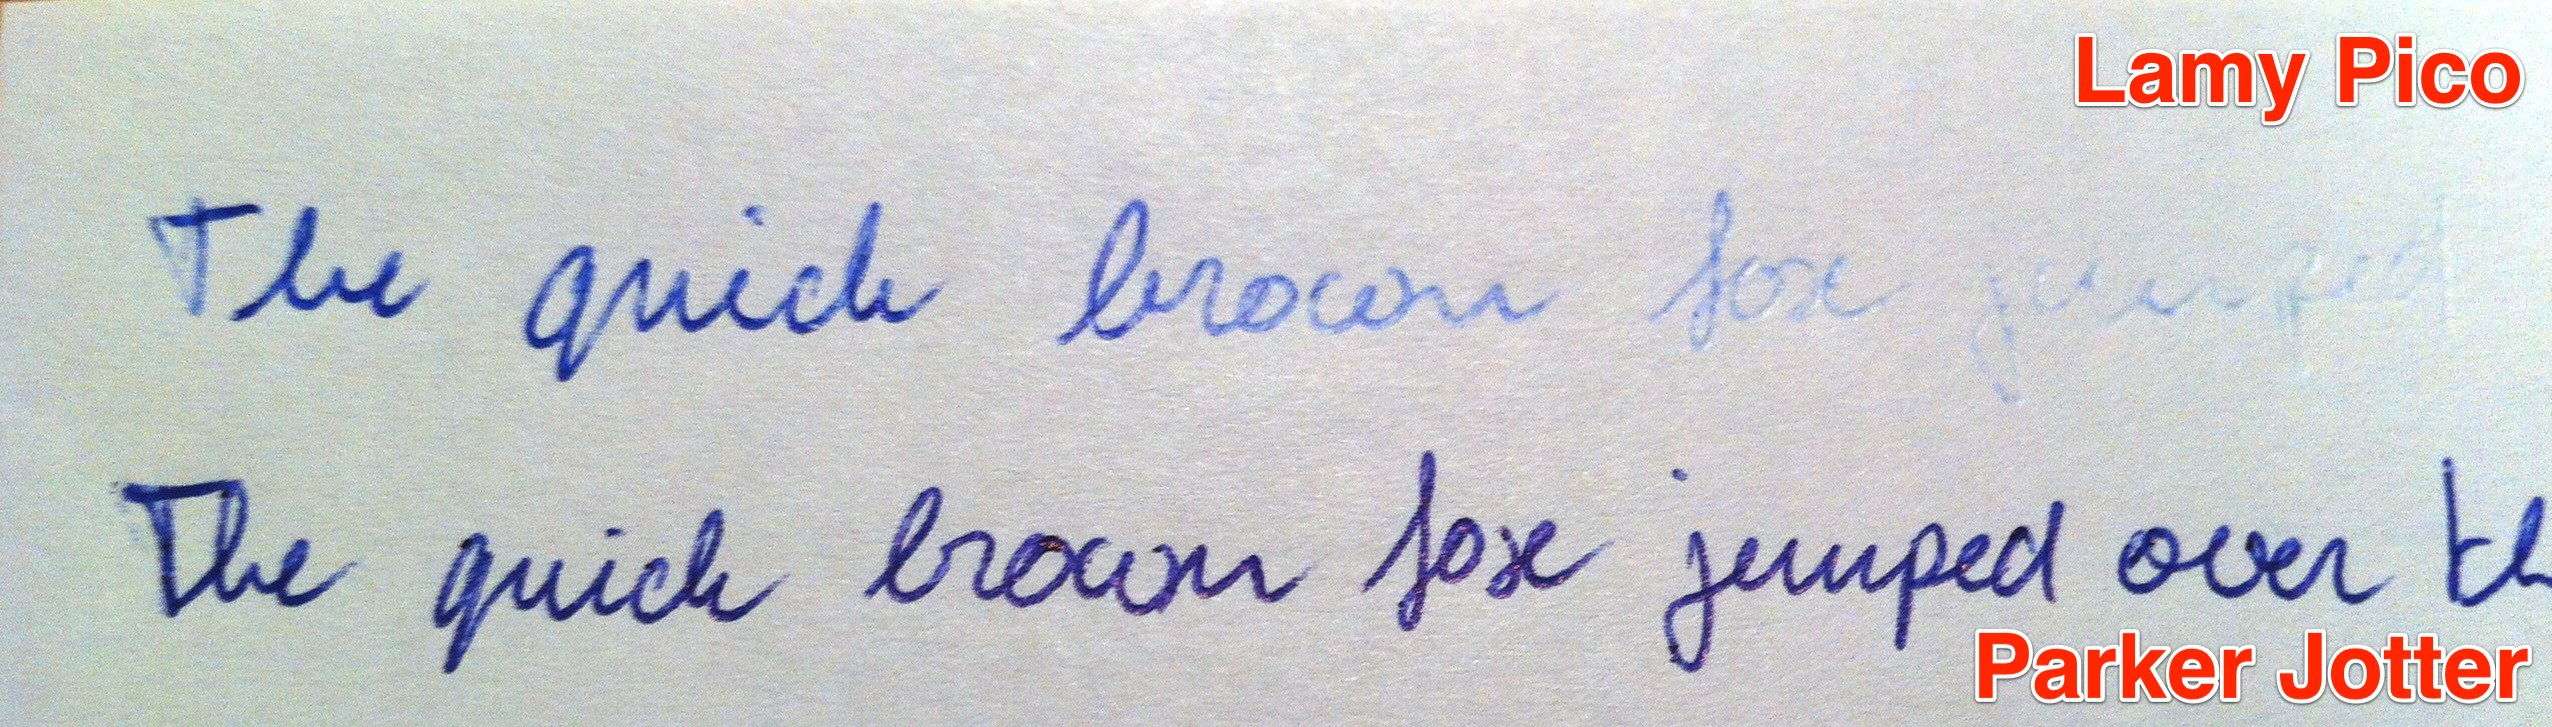 Lamy Pico
The quick brown fox jumped
The quick brown fox jumped over th
Parker Jotter